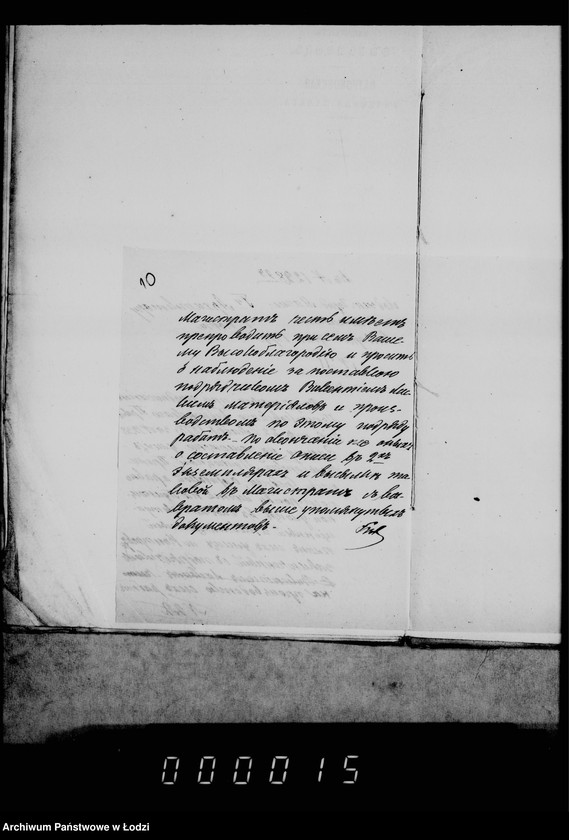 10
Магистратъ честь имѣетъ
препроводить при семъ Ваше-
му Высокоблагородію и просить
о наблюденіе за поставкою
подрядчикомъ Валентіемъ
матеріяловъ и произ-
водствомъ по этому подряду
работъ по окончаніе
о составленіе описи въ 2хъ
экземплярахъ и высылки та-
ковой въ Магистратъ съ воз-
вратомъ выше упомянутыхъ
документовъ.
000015
Archiwum Państwowe w Łodzi